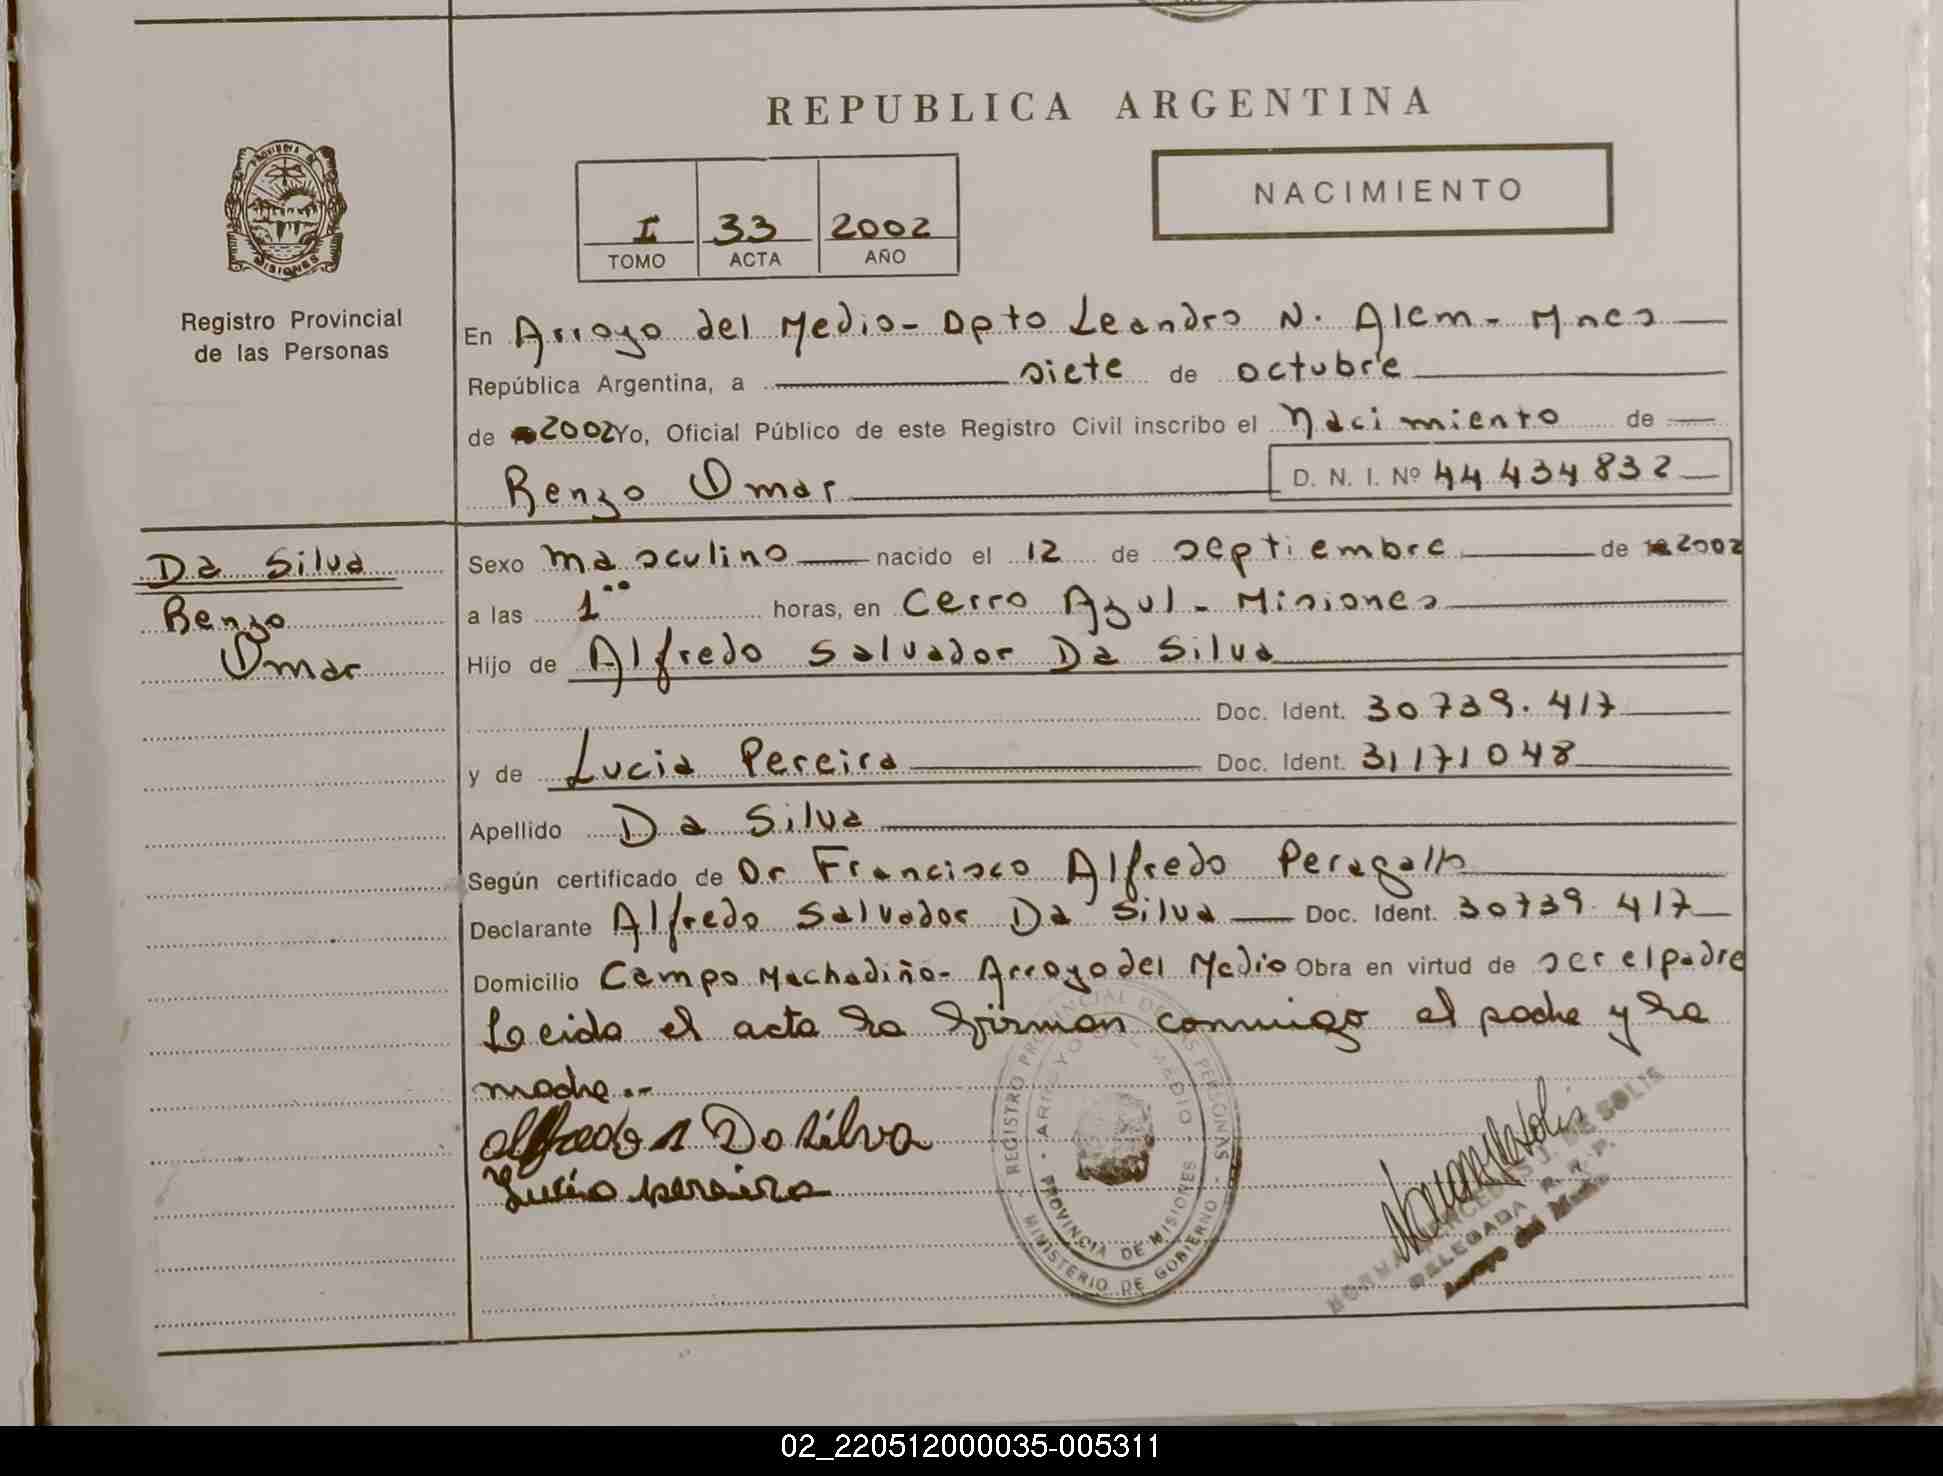 REPUBLICA ARGENTINA
PROVINCIA DE
MISIONES
Registro Provincial
de las Personas
I 33 2002
TOMO ACTA AÑO
NACIMIENTO
En Arroyo del Medio - Dpto Leandro N. Alem - Mnes
República Argentina, a siete de octubre
de 2002 Yo, Oficial Público de este Registro Civil inscribo el Nacimiento de
Renzo Omar D. N. I. Nº 44 434 832
Da Silva
Renzo
Omar
Sexo masculino nacido el 12 de septiembre de 2002
a las 1 horas, en Cerro Azul - Misiones
Hijo de Alfredo Salvador Da Silva
Doc. Ident. 30 739. 417
y de Lucia Pereira Doc. Ident. 31171048
Apellido Da Silva
Según certificado de Dr Francisco Alfredo Peragallo
Declarante Alfredo Salvador Da Silva Doc. Ident. 30739 417
Domicilio Campo Machadiño - Arroyo del Medio Obra en virtud de ser el padre
Leida el acta la firman conmigo el padre y la
madre.-
Alfredo s Da silva
Lucia pereira
REGISTRO PROVINCIAL DE LAS PERSONAS
ARROYO DEL MEDIO
PROVINCIA DE MISIONES
MINISTERIO DE GOBIERNO
NORMA MERCEDES J. DE SOLIS
DELEGADA R. R. P.
Arroyo del Medio
02_220512000035-005311